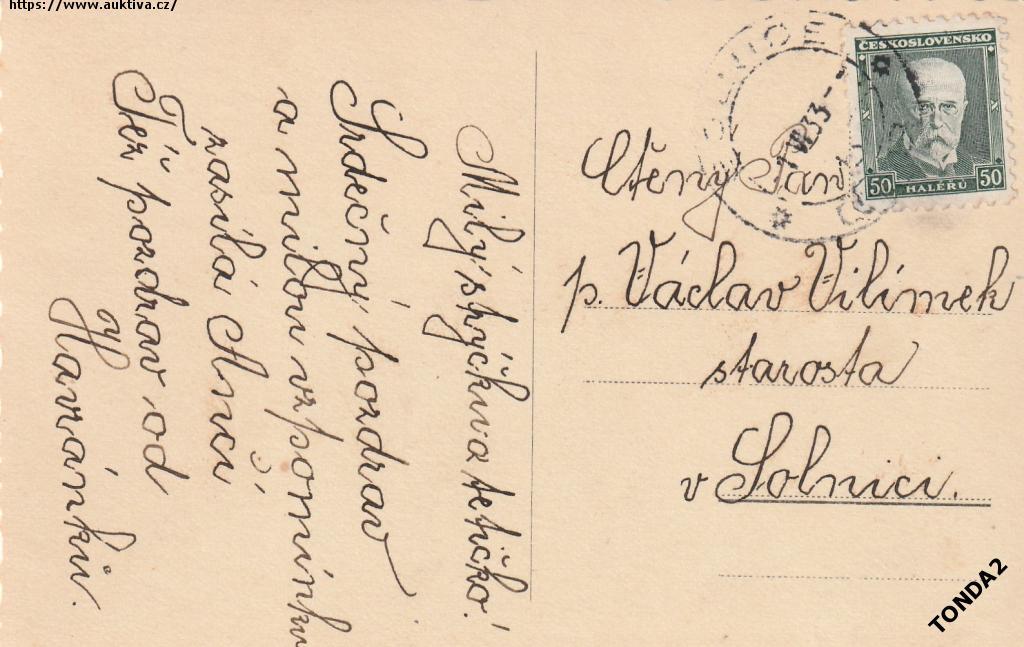 https://www.auktiva.cz/
Milý strýčku a tetičko!
Srdečný pozdrav
a milou vzpomínku
zasílá Anči
Též pozdrav od
Havránků.
ČESKOSLOVENSKO
50 HALÉRŮ 50
VII 33
Ctěný Pan
p. Václav Vilímek
starosta
v Solnici.
TONDA2